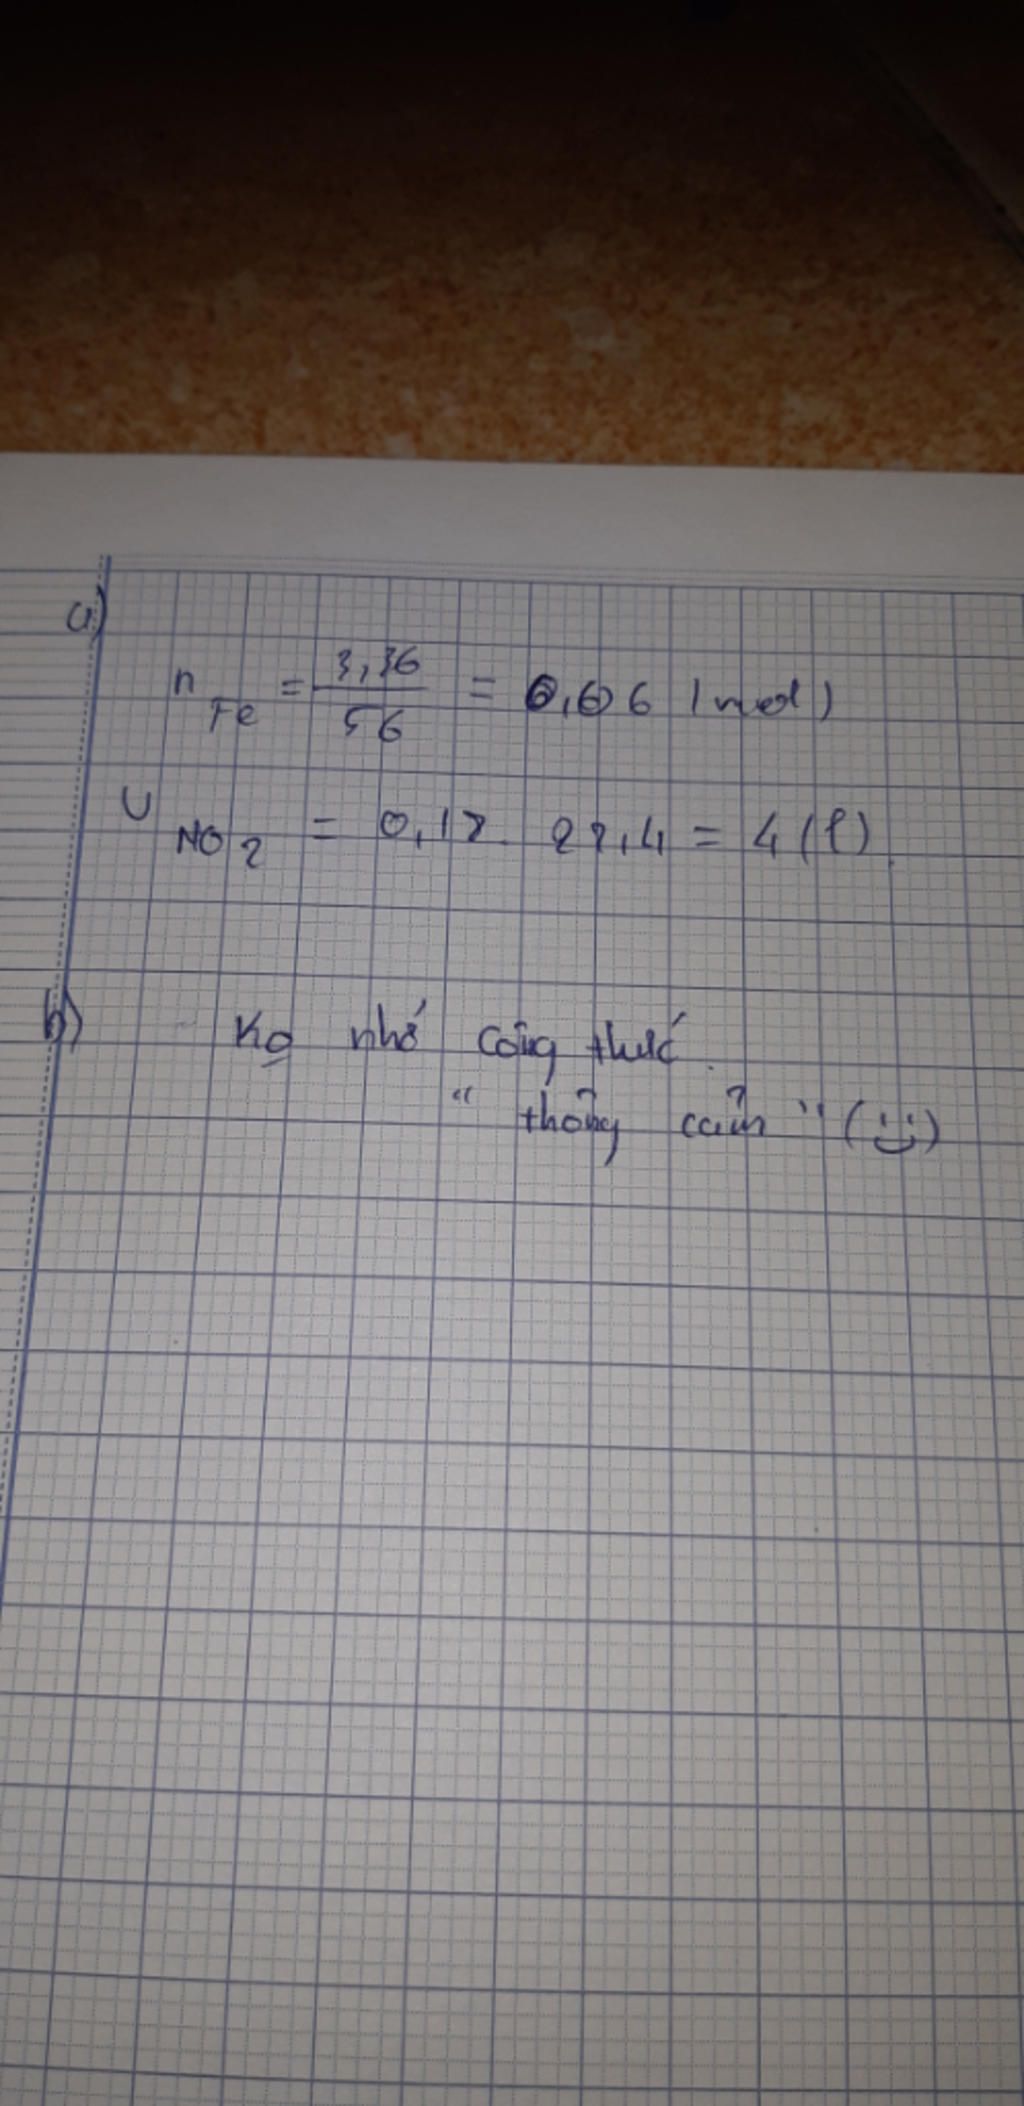 a)
n Fe = 3,36 / 56 = 0,06 (mol)
V NO2 = 0,18 . 22,4 = 4 (l)
b) Ko nhớ công thức.
" thông cảm " (:))